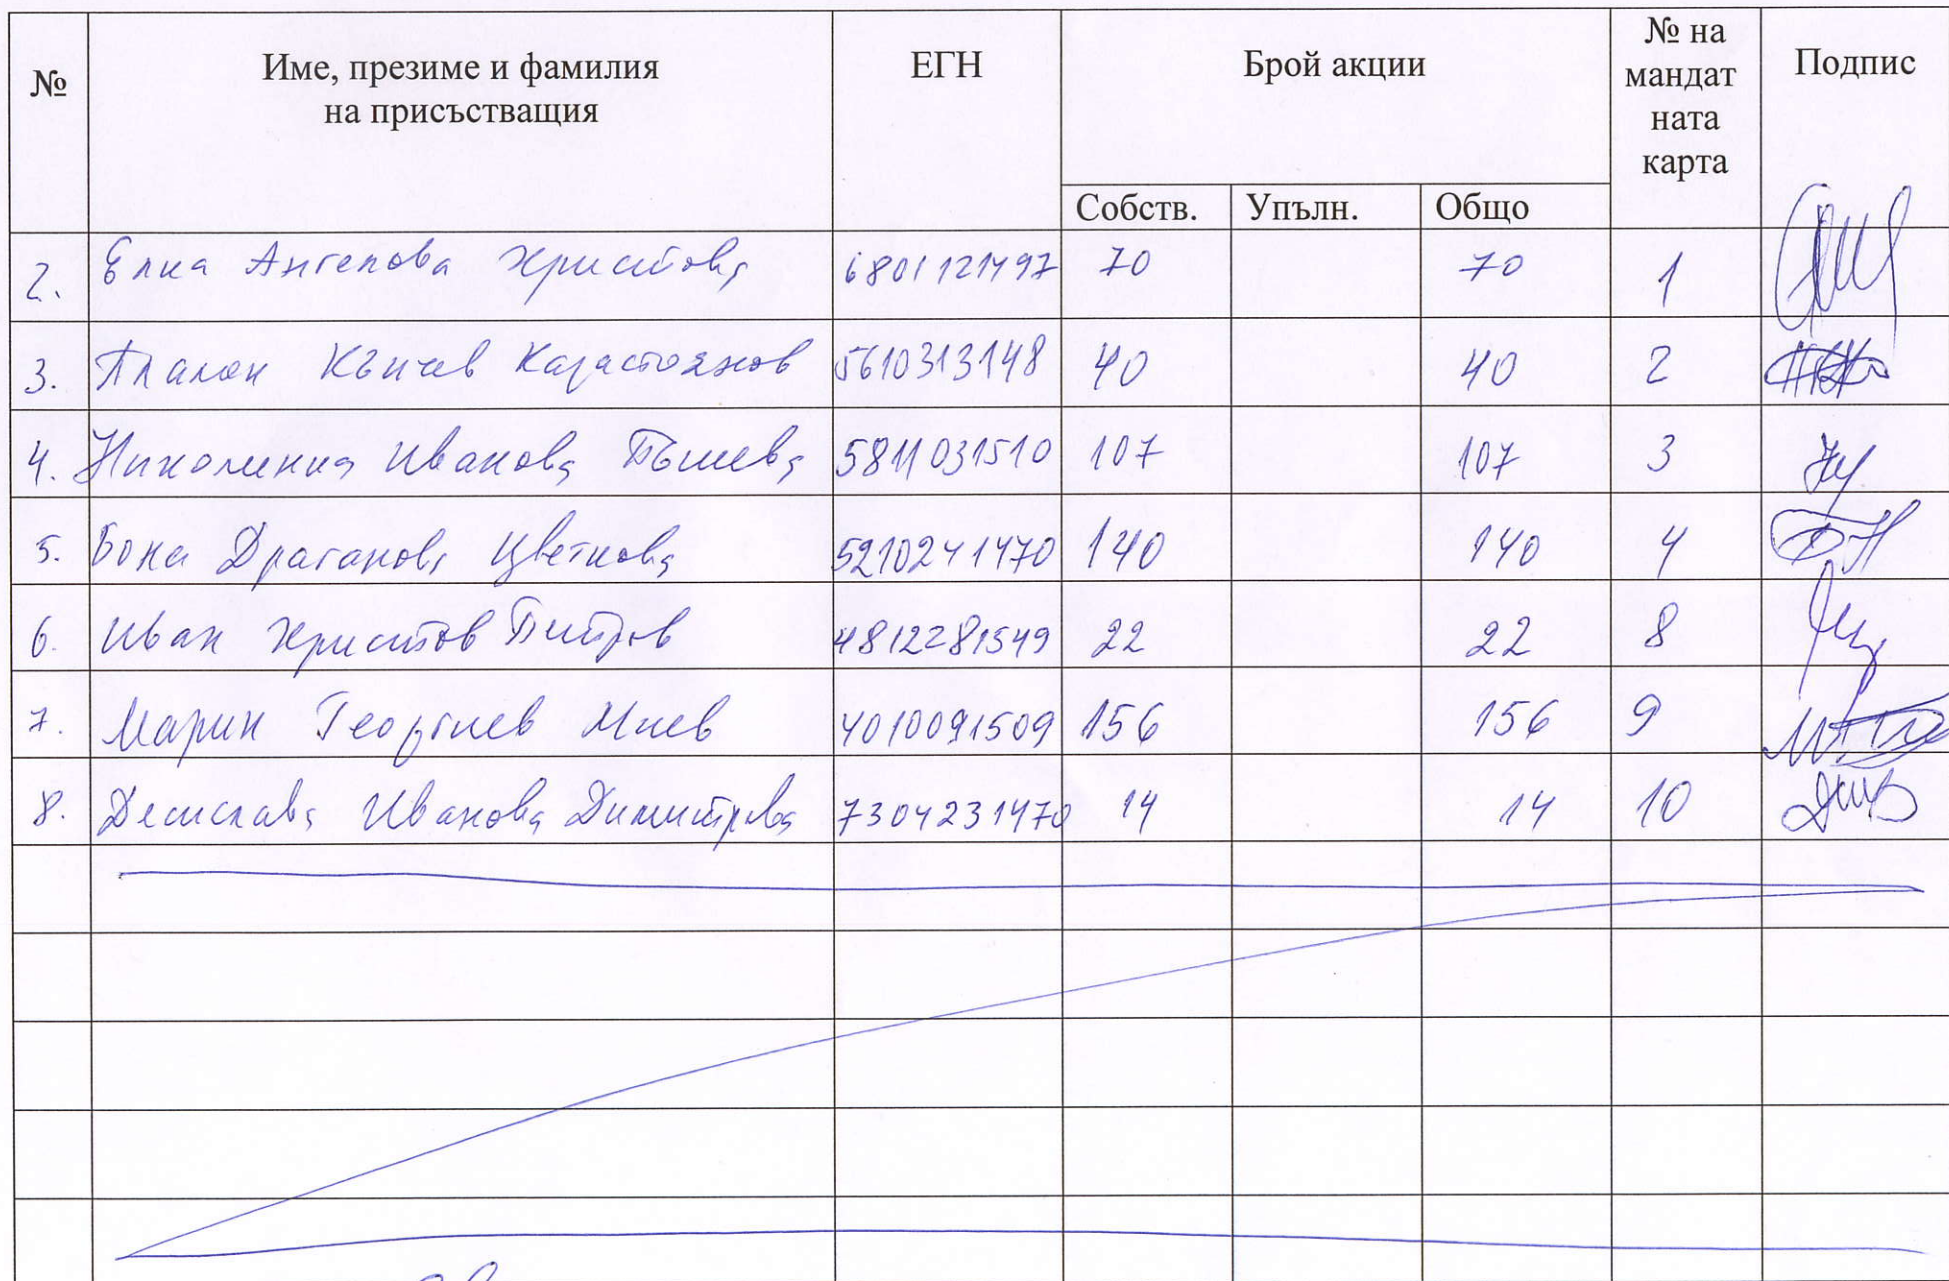 № Име, презиме и фамилия на присъстващия ЕГН Брой акции № на мандат ната карта Подпис
Собств. Упълн. Общо
2. Елка Ангелова Христова 6801121497 70 70 1
3. Пламен Кънчев Карастоянов 5610313148 40 40 2
4. Николинка Иванова 5811031510 107 107 3
5. Бона Драганова Цветкова 5210241470 140 140 4
6. Иван Христов 4812281549 22 22 8
7. Марин Георгиев 4010091509 156 156 9
8. Десислава Иванова Димитрова 7304231470 14 14 10